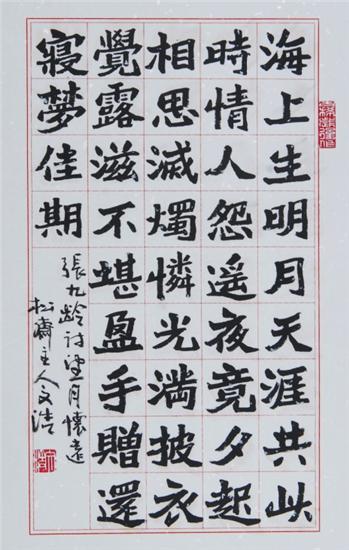 海上生明月天涯共此
時情人怨遥夜竟夕起
相思滅燭憐光滿披衣
覺露滋不堪盈手贈還
寢夢佳期
張九龄诗望月懷遠
松齋主人文浩